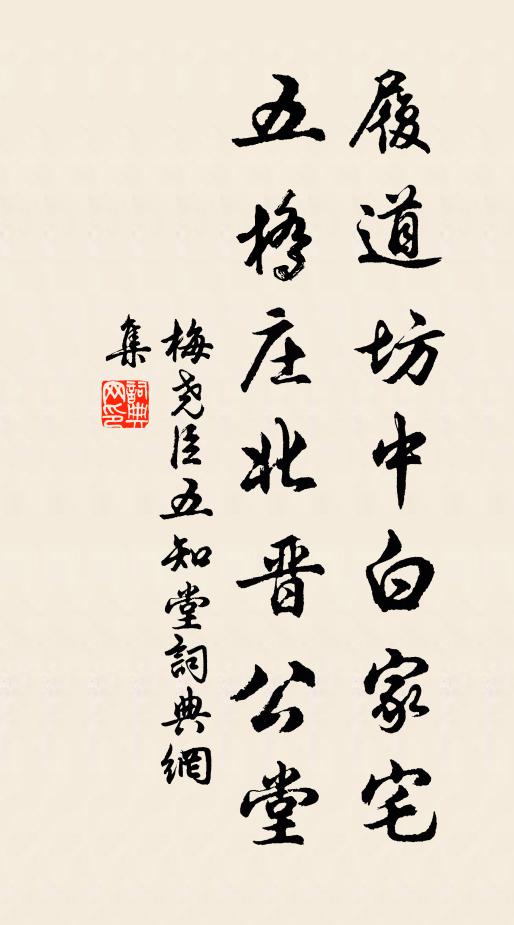 履道坊中白家宅
五桥庄北晋公堂
梅尧臣五知堂詞典網
集
詞典
网印